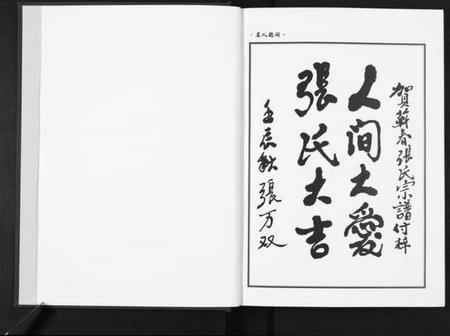 ·名人题词·
贺蕲春張氏宗譜付梓
人间大愛
張氏大吉
壬辰秋張万双